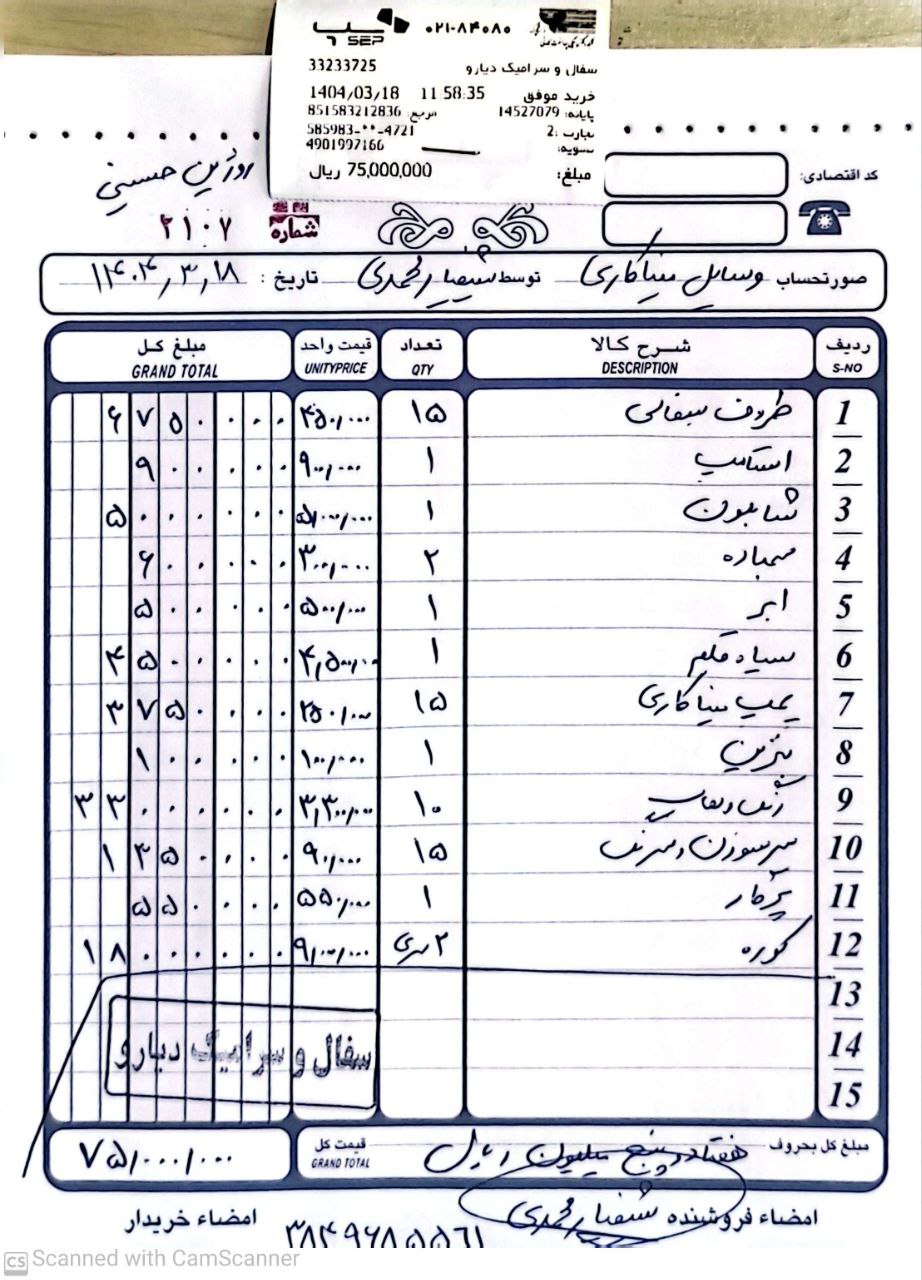 SEP ۰۲۱-۸۴۰۸۰
33233725 سفال و سرامیک دیارو
خرید موفق 11:58:35 1404/03/18
پایانه: 14527079 مرجع: 851583212836
585983-**-4721
4901997166
مبلغ: 75,000,000 ریال
کد اقتصادی:
روژین حسینی
شماره ۲۱۰۷
صورتحساب وسایل میناکاری توسط تاریخ: ۱۴۰۴,۳,۱۸
ردیف شرح کالا تعداد قیمت واحد مبلغ کل
S-NO DESCRIPTION QTY UNITYPRICE GRAND TOTAL
1 ظروف سفالی ۱۵ ۴۵۰,۰۰۰ ۶۷۵۰۰۰۰
2 استامپ ۱ ۹۰۰,۰۰۰ ۹۰۰۰۰۰
3 شابلون ۱ ۵,۰۰۰,۰۰۰ ۵۰۰۰۰۰۰
4 سمباده ۲ ۳۰۰,۰۰۰ ۶۰۰۰۰۰
5 ابر ۱ ۵۰۰,۰۰۰ ۵۰۰۰۰۰
6 سیاه قلم ۱ ۴,۵۰۰,۰۰۰ ۴۵۰۰۰۰۰
7 پمپ میناکاری ۱۵ ۲۵۰,۰۰۰ ۳۷۵۰۰۰۰
8 بنزین ۱ ۱۰۰,۰۰۰ ۱۰۰۰۰۰
9 رنگ و لعاب ۱۰ ۳,۳۰۰,۰۰۰ ۳۳۰۰۰۰۰۰
10 سرسوزن و سرنگ ۱۵ ۹۰,۰۰۰ ۱۳۵۰۰۰۰
11 پرگار ۱ ۵۵۰,۰۰۰ ۵۵۰۰۰۰
12 کوره ۲ سری ۹,۰۰۰,۰۰۰ ۱۸۰۰۰۰۰۰
13
14 سفال و سرامیک دیارو
15
مبلغ کل بحروف هفتاد و پنج میلیون ریال قیمت کل ۷۵,۰۰۰,۰۰۰
GRAND TOTAL
امضاء فروشنده امضاء خریدار
CS Scanned with CamScanner